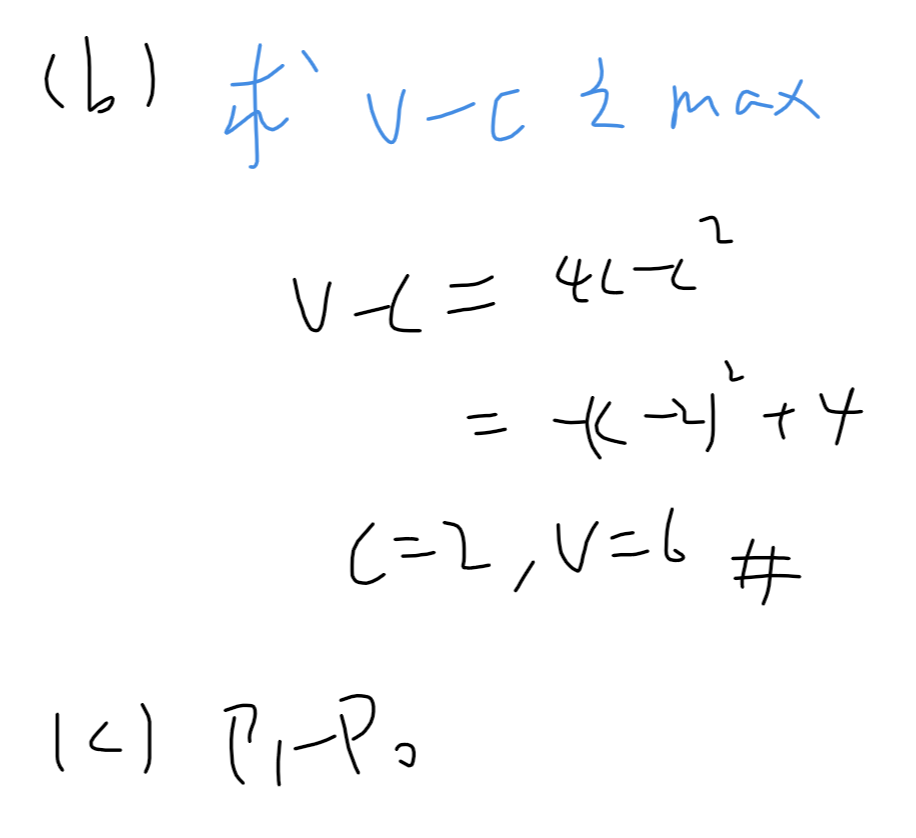 (b) 求 V-C 之 max
V-C = 4C-C²
= -(C-2)²+4
C=2, V=6 #
(c) P₁-P₀